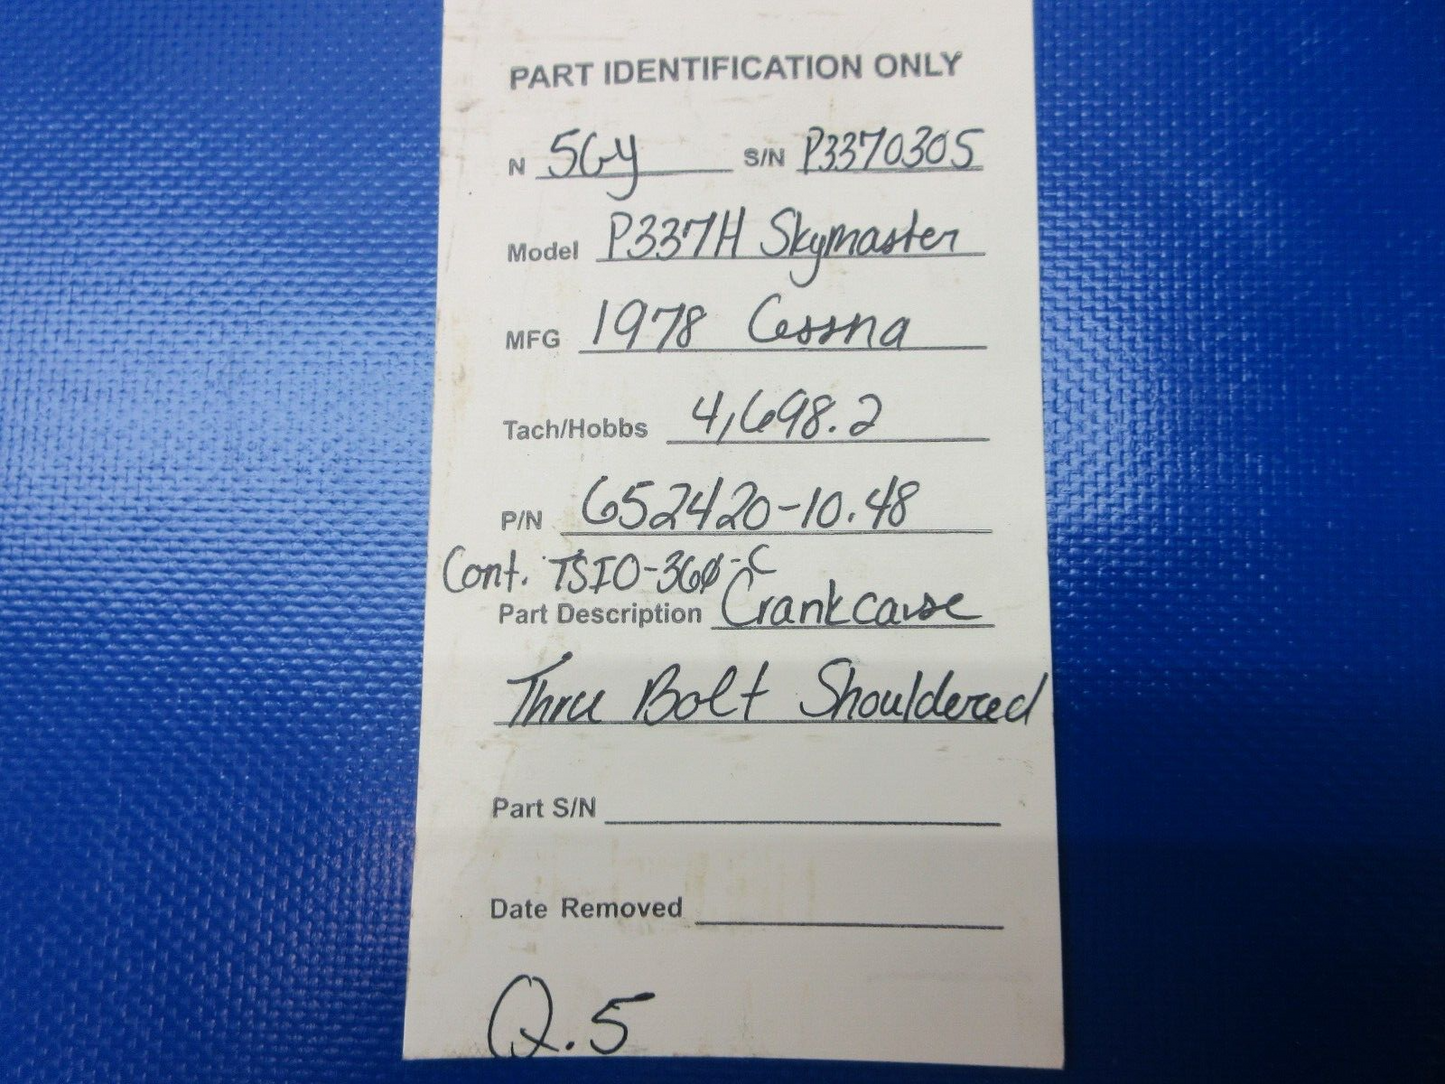 PART IDENTIFICATION ONLY
N 5GY S/N P3370305
Model P337H Skymaster
MFG 1978 Cessna
Tach/Hobbs 4,698.2
P/N 652420-10.48
Cont. TSIO-360-C
Part Description Crankcase
Three Bolt Shouldered
Part S/N
Date Removed
Q.5